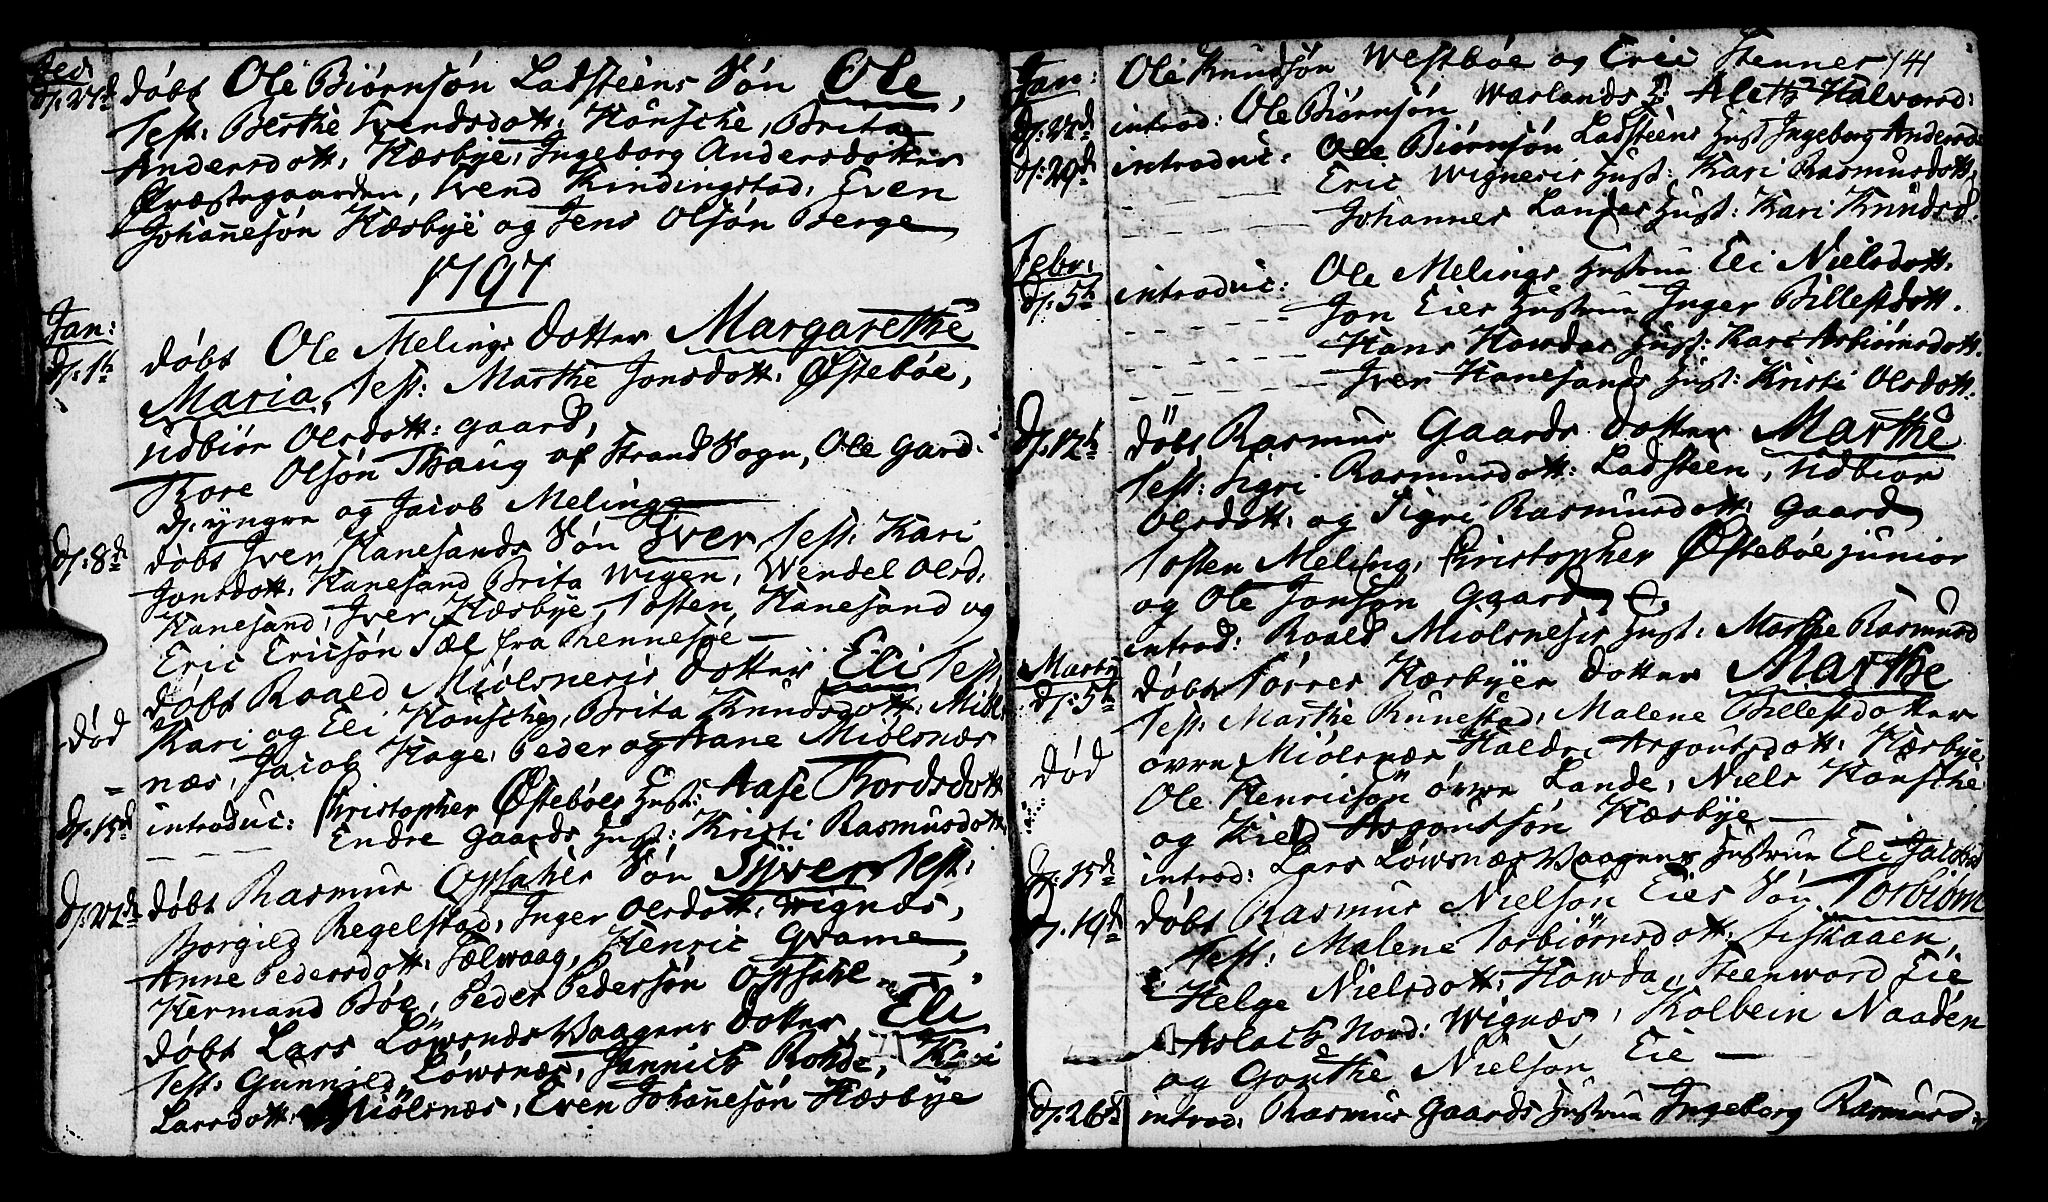 Dec:
d. 27d døbt Ole Biørnsøn Ladsteens Søn Ole,
Test: Berthe Svendsdott: Hausche, Brita
Andersdott: Hæsbye, Ingeborg Andersdotter
Præstegaarden, Svend Kindingstad, Even
Johanesøn Hæsbye og Jens Olsøn Berge
1797
Jan:
d. 1t døbt Ole Melings Dotter Margarethe
Maria, Test: Marthe Jonsdott: Østebøe,
Udbiør Olsdott: Gaard,
Tore Olsøn Thaug af Strand Sogn, Ole Gard
d. yngre og Jacob Meling
d. 8d døbt Iver Hanesands Søn Iver Test: Kari
Jonsdott: Hanesand Brita Wigen, Wendel Olsd:
Hanesand, Iver Hæsbye, Tosten Hanesand og
Eric Ericsøn Sæl fra Rennesøe
døbt Roald Miølsnesis Dotter Eli Test:
død Kari og Eli Housche, Brita Knudsdott: Miøls
næs, Jacob Hage, Peder og Aane Miølsnæs
d. 15d introduc: Christopher Østebøes Hust: Aase Tordsdott
Endre Gaards Hust: Kristi Rasmusdott:
d. 22d døbt Rasmus Opsahls Søn Syver Test:
Borgild Regelstad, Inger Olsdott: Wignæs,
Anne Pedersdott: Sælwaag, Henric Grame,
Hermand Bøe, Peder Pedersøn Opsahl
døbt Lars Løwsnæs Vaagens Dotter Eli
Test: Gunnild Løwsnæs, Jannich Rohde, Kari
Larsdott: Miølsnæs, Even Johanesøn Hæsbye
141
Jan: Ole Knudsøn Westbøe og Eric Stenner
d. 22d introd: Ole Biørnsøn Warlands H: Aleth Halvorsd:
d. 29d introduc: Ole Biørnsøn Ladsteens Hust Ingeborg Andersd
Eric Wignesis Hust: Kari Rasmusdott:
Johannes Landes Hust: Kari Knudsd.
Febr:
d. 5t introduc: Ole Melings Hustrue Eli Nielsdott.
Jon Eies Hustrue Inger Billestdott.
Hans Howdas Hust: Kari Asbiørnsdott.
Iver Hanesands Hust: Kristi Olsdott.
d. 12t døbt Rasmus Gaards Dotter Marthe
Test: Sigri Rasmusdott: Ladsteen, Udbiør
Olsdott: og Sigri Rasmusdott: Gaard
Tosten Meling, Christopher Østebøe junior
og Ole Jonsøn Gaard
introd: Roald Miølsnesis Hust: Marthe Rasmusd
Marty
d. 5t døbt Torres Hæsbyes Dotter Marthe
Test: Marthe Runestad, Malene Billestdotter
død øvre Miølsnæs Haldri Asgoutsdott: Hæsbye,
Ole Henricsøn øvre Lande, Niels Housche
og Kield Asgoutsøn Hæsbye
d. 15d introd: Lars Løwsnæs Vaagens Hustrue Eli Jacobsd
d. 19d døbt Rasmus Nielsøn Eies Søn Torbiørn
Test: Malene Torbiørnsdott: Fiskaaen,
Helge Nielsdott: Howda, Steenword Eie
Aslach Nord: Wignæs, Kolbein Naaden
og Gouthe Nielsøn Eie
d. 26d introd: Rasmus Gaards Hustrue Ingeborg Rasmusd: